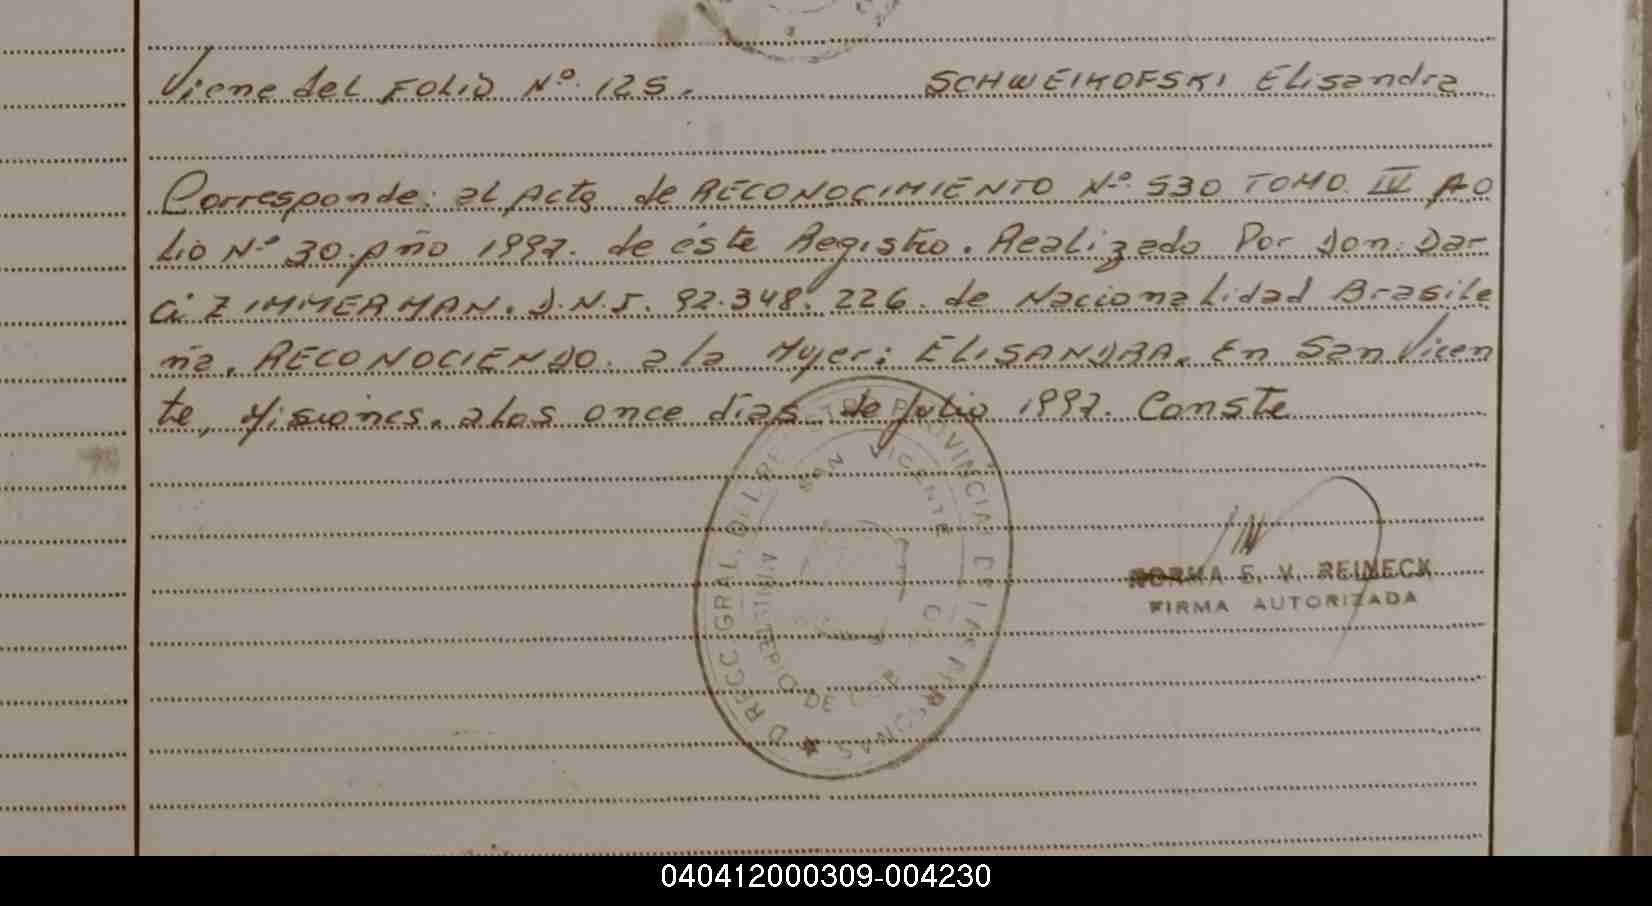 Viene del FOLIO Nº. 125. SCHWEIKOFSKI Elisandra
Corresponde: al Acta de RECONOCIMIENTO Nº. 530 TOMO. IV FO
LiO Nº 30. Año 1997. de éste Registro. Realizado Por Don. Dar
ci ZIMMERMAN. D.N.I. 92.348.226. de Nacionalidad Brasile
ña. RECONOCIENDO. a la Mujer: ELISANDRA. En San Vicen
te, Misiones. a los once días de Julio 1997. Conste
SAN VICENTE
NORMA E. V. REINECK
FIRMA AUTORIZADA
040412000309-004230